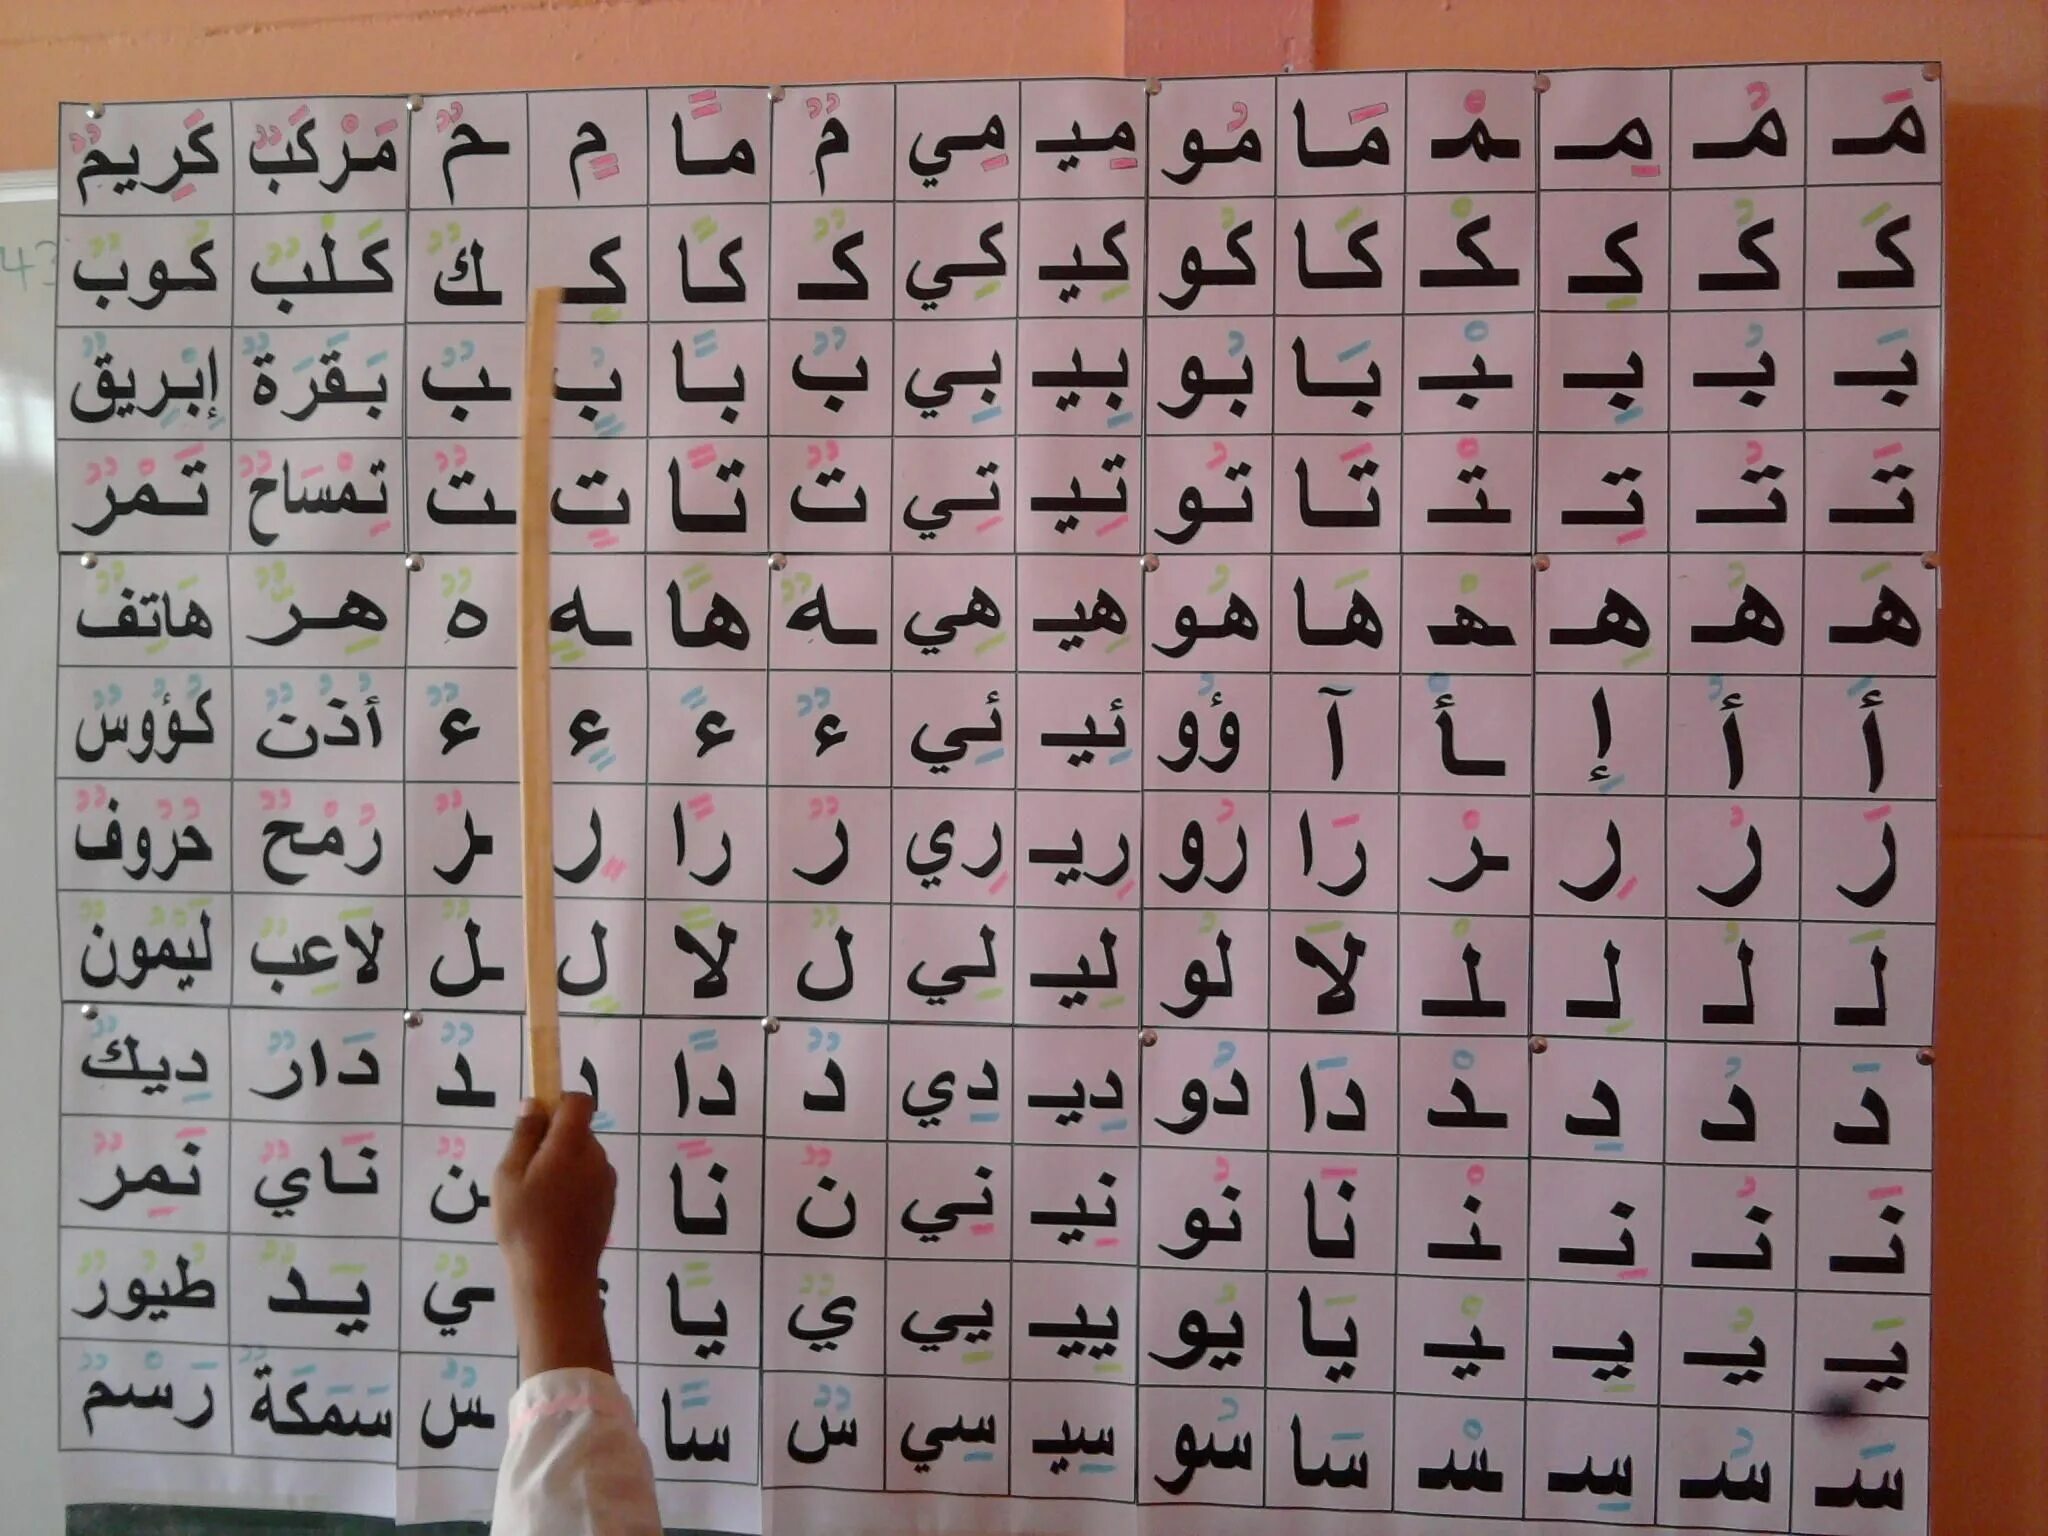 مَـ مُـ مِـ ـمْـ مَـا مُـو مِيـ مِي مٌ مـاً مٍ ـمٌ مَرْكَبٌ كَرِيمٌ
كَـ كُـ كِـ ـكْـ كَـا كُـو كِيـ كِـي كـٌ كـاً كـٍ ـكٌ كَـلْبٌ كُـوبٌ
بَـ بُـ بِـ ـبْـ بَـا بُـو بِيـ بِـي بٌ بـاً بٍ ـبٌ بَـقَرَةٌ إِبْـرِيقٌ
تَـ تُـ تِـ ـتْـ تَـا تُـو تِيـ تِـي تٌ تـاً تٍ ـتٌ تِمْسَاحٌ تَـمْرٌ
هَـ هُـ هِـ ـهْـ هَـا هُـو هِيـ هِي ـهٌ هاً ـهٍ هٌ هِـرٌّ هَاتِفٌ
أَ أُ إِ ـأْ آ ؤُو ئِيـ ئِـي ءٌ ءً ءٍ ءٌ أُذُنٌ كُؤُوسٌ
رَ رُ رِ ـرْ رَا رُو رِيـ رِي رٌ راً رٍ ـرٌ رُمْحٌ حُرُوفٌ
لَـ لُـ لِـ ـلْـ لَا لُو لِيـ لِـي لٌ لاً لٍ ـلٌ لَاعِبٌ لَيْمُونٌ
دَ دُ دِ ـدْ دَا دُو دِيـ دِي دٌ داً ـدٌ دَارٌ دِيكٌ
نَـ نُـ نِـ ـنْـ نَـا نُـو نِيـ نِـي نٌ نـاً ـنٌ نَـايٌ نَـمِرٌ
يَـ يُـ يِـ ـيْـ يَـا يُـو يِيـ يِـي يٌ يـاً ـيٌ يَـدٌ طُيُورٌ
سَـ سُـ سِـ ـسْـ سَـا سُـو سِيـ سِي سٌ سـاً ـسٌ سَمَكَةٌ رَسْمٌ